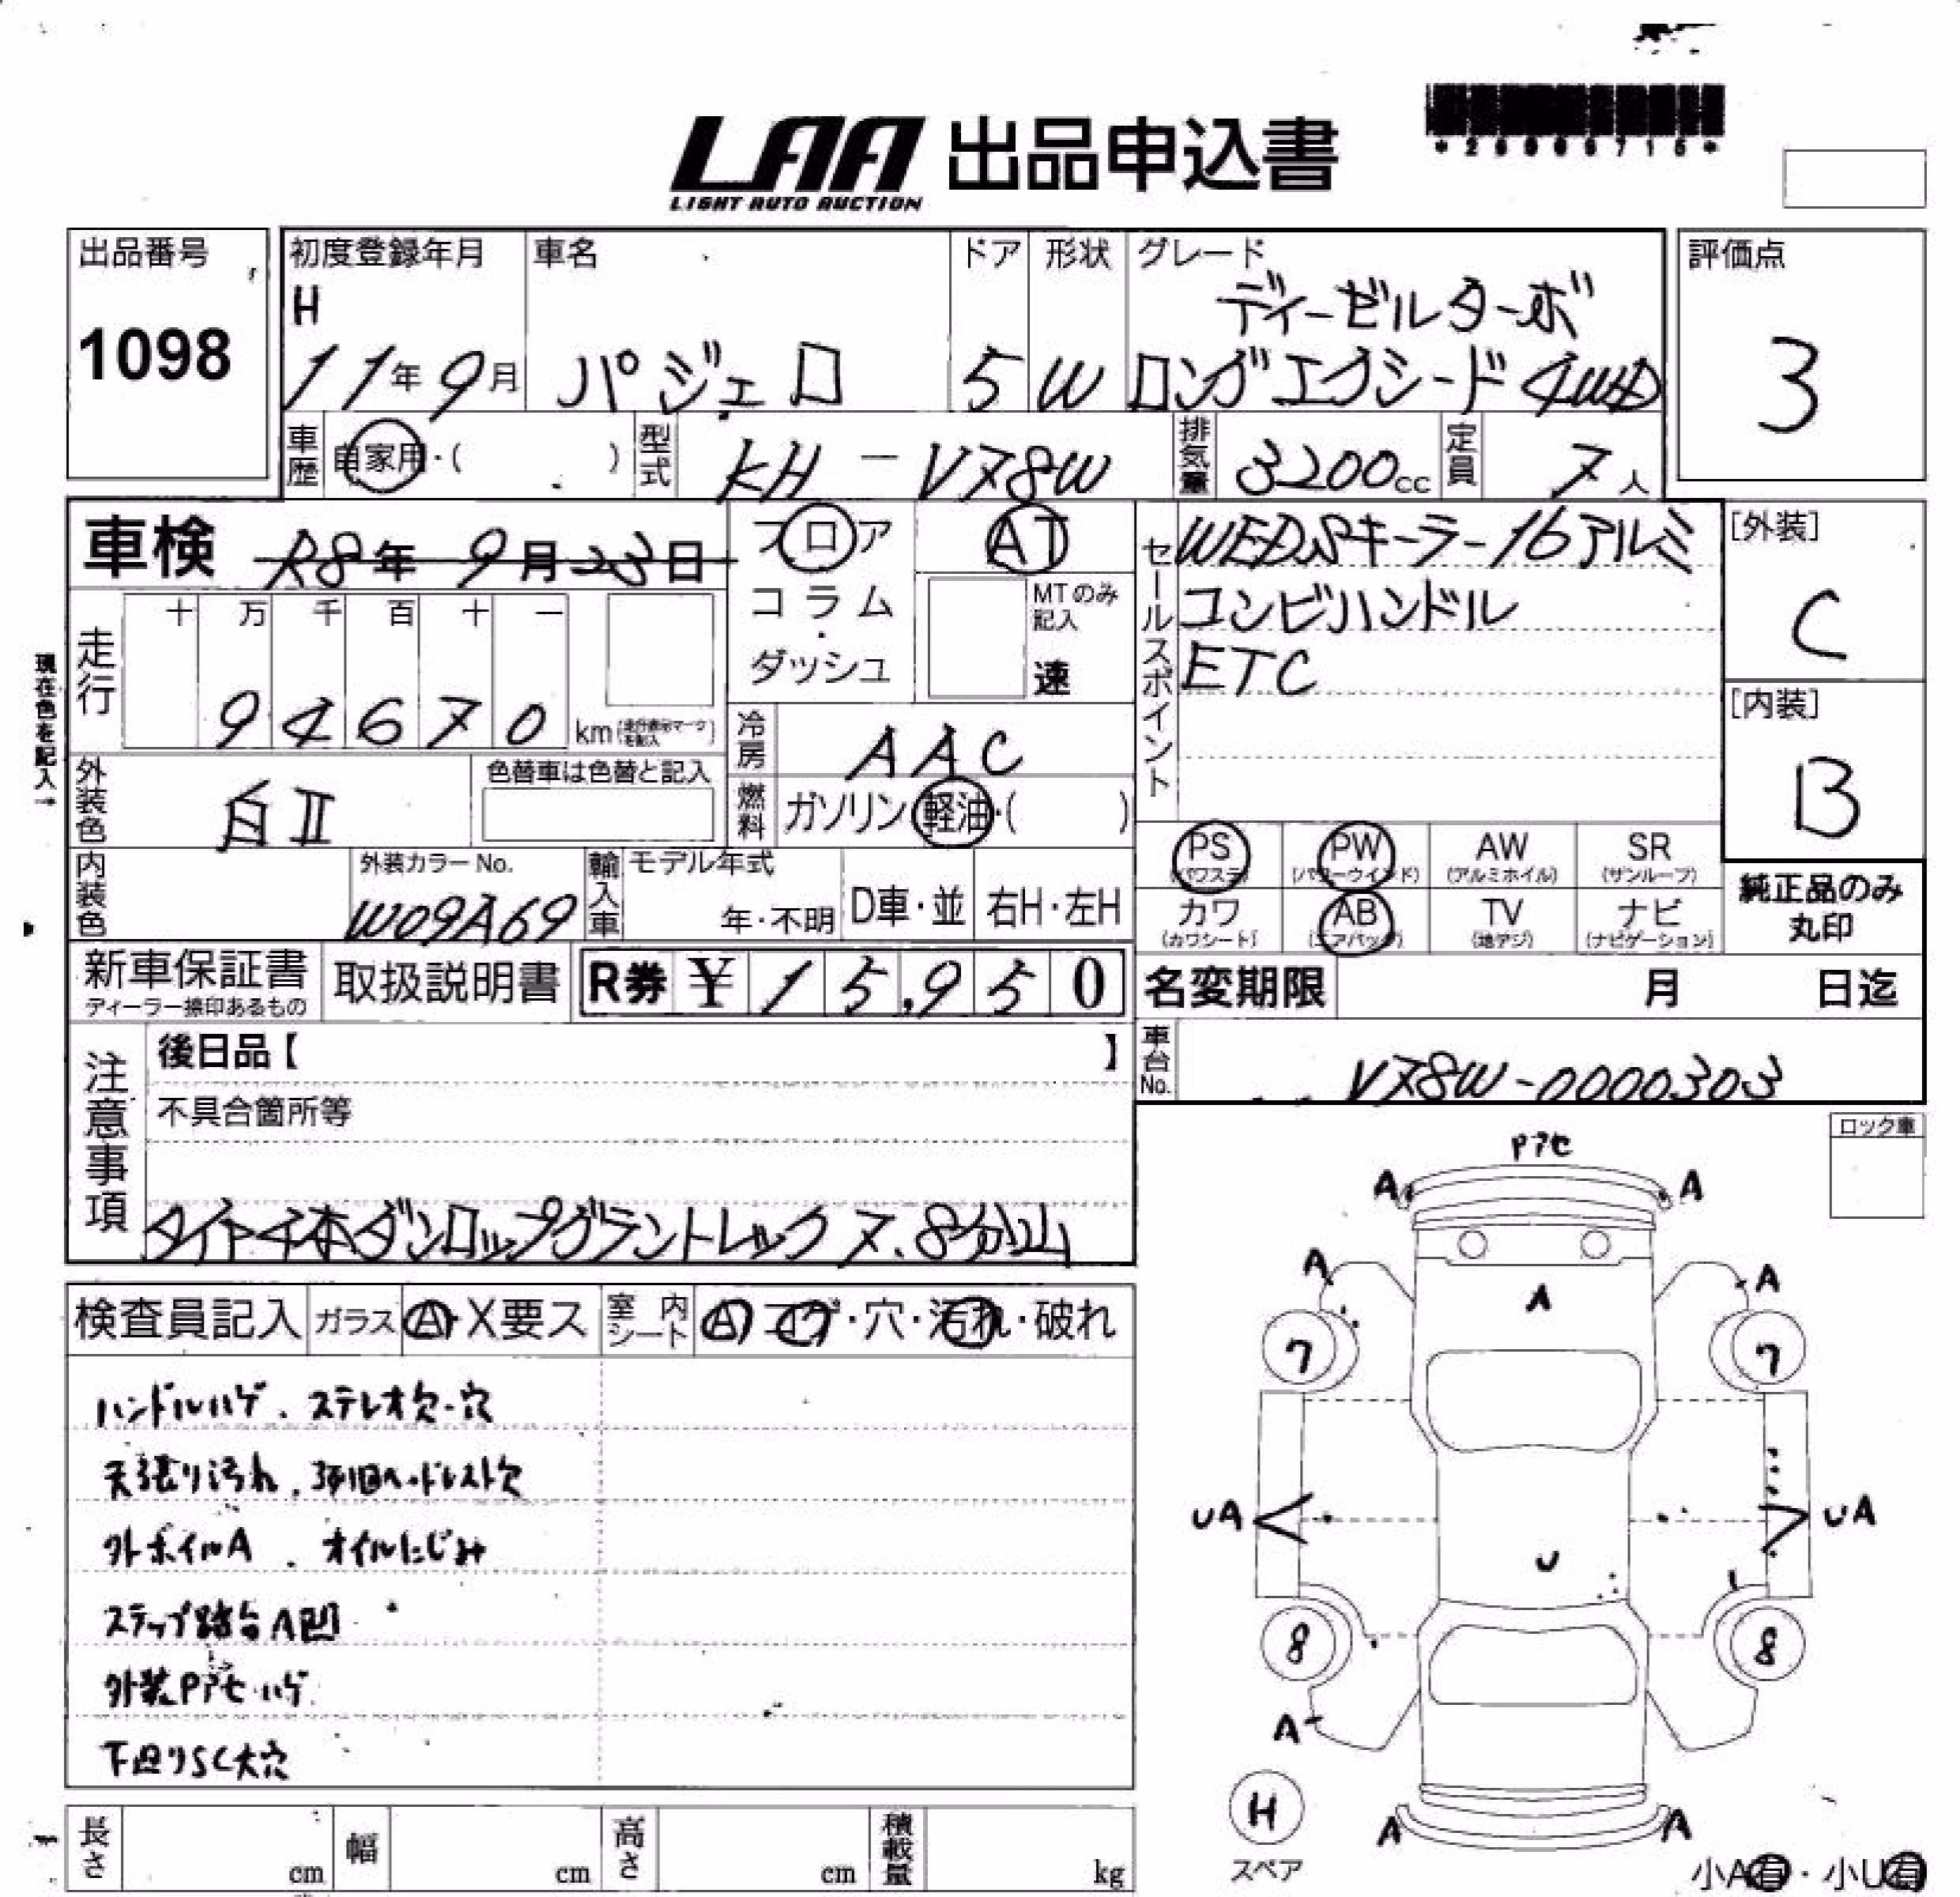 LAA 出品申込書
LIGHT AUTO AUCTION
出品番号
1098
初度登録年月
H
11年9月
車名
パジェロ
ドア
5
形状
W
グレード
ディーゼルターボ
ロングエクシード4WD
評価点
3
車歴
自家用・( )
型式
KH-V78W
排気量
3200cc
定員
7人
車検
R8年 9月23日
フロア
コラム
・
ダッシュ
AT
MTのみ
記入
速
セールスポイント
WEDSキーラー16アルミ
コンビハンドル
ETC
[外装]
C
[内装]
B
現在色を記入→
走行
十 万 千 百 十 一
94670
km
外装色
白II
色替車は色替と記入
冷房
AAC
燃料
ガソリン・軽油・( )
内装色
外装カラーNo.
W09A69
輸入車
モデル年式
年・不明
D車・並
右H・左H
PS AW SR
(パワステ) (パワーウインド) (アルミホイル) (サンルーフ)
PW
カワ AB TV ナビ
(カワシート) (エアバッグ) (地デジ) (ナビゲーション)
純正品のみ
丸印
新車保証書
ディーラー捺印あるもの
取扱説明書
R券 ¥15,950
名変期限
月 日迄
車台No.
V78W-0000303
注意事項
後日品【 】
不具合箇所等
タイヤ4本ダンロップグラントレック 7.8分山
検査員記入
ガラス
A・X要ス
室内シート
A・コゲ・穴・汚れ・破れ
ハンドルハゲ、ステレオ欠・穴
天張り汚れ、3列目ヘッドレスト欠
外ホイルA、オイルにじみ
ステップ踏台A凹
外装Pアセ・ハゲ
下廻りSC大穴
長さ
cm
幅
cm
高さ
cm
積載量
kg
ロック車
Pアセ
A A
A A
A
7 7
UA UA
U
8 8
A
H
スペア
A A
小A有・小U有